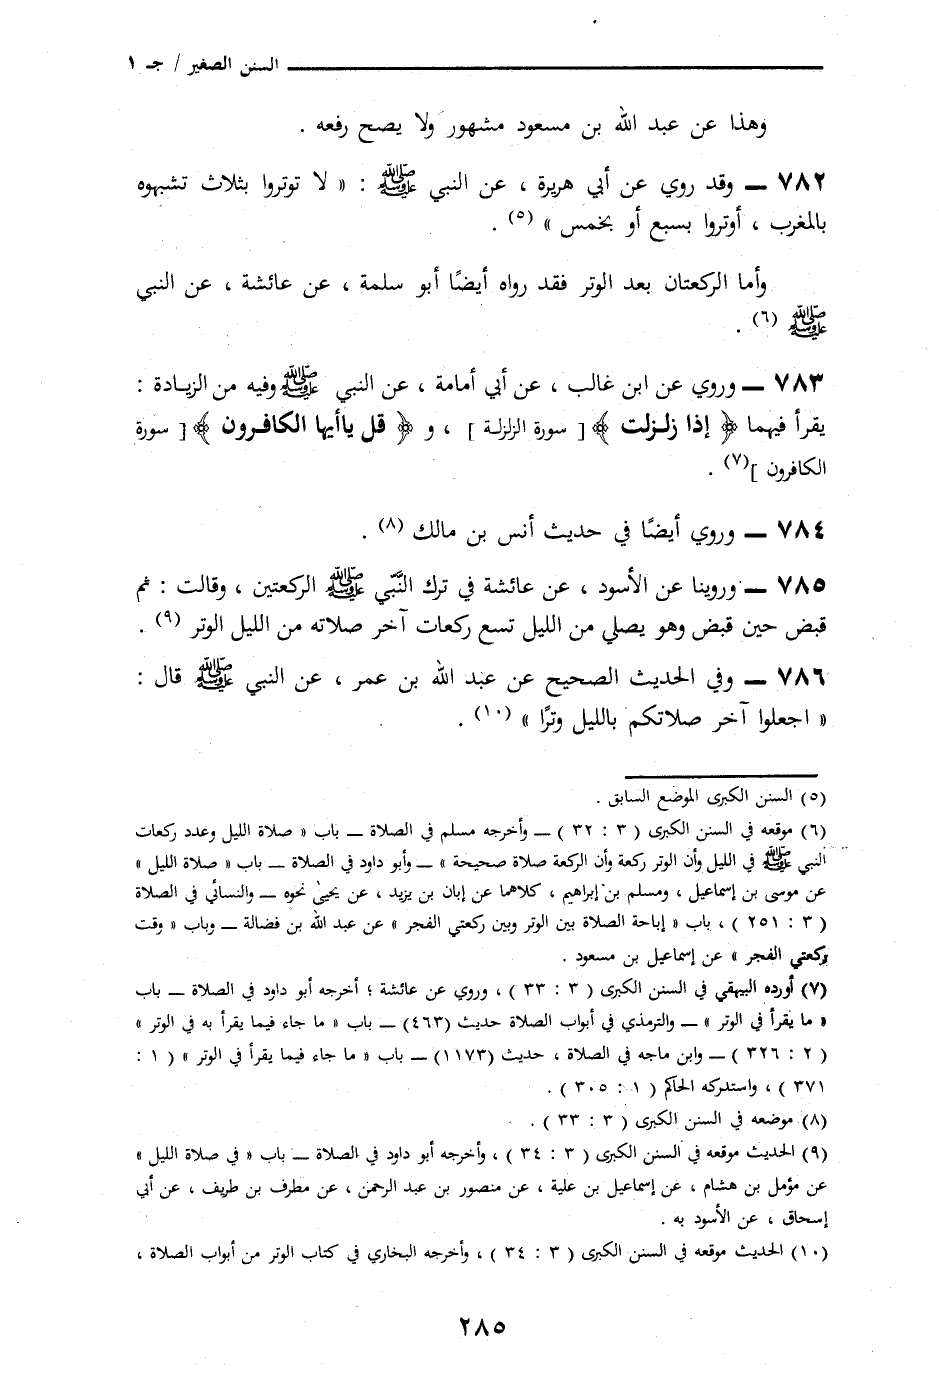 السنن الصغير / جـ ١
وهذا عن عبد الله بن مسعود مشهور ولا يصح رفعه .
٧٨٢ ـ وقد روي عن أبي هريرة ، عن النبي ﷺ : « لا توتروا بثلاث تشبهوه
بالمغرب ، أوتروا بسبع أو بخمس » (٥) .
وأما الركعتان بعد الوتر فقد رواه أيضًا أبو سلمة ، عن عائشة ، عن النبي
ﷺ (٦) .
٧٨٣ ـ وروي عن ابن غالب ، عن أبي أمامة ، عن النبي ﷺ وفيه من الزيادة :
يقرأ فيهما ﴿ إذا زلزلت ﴾ [ سورة الزلزلة ] ، و ﴿ قل ياأيها الكافرون ﴾ [ سورة
الكافرون ](٧) .
٧٨٤ ـ وروي أيضًا في حديث أنس بن مالك (٨) .
٧٨٥ ـ وروينا عن الأسود ، عن عائشة في ترك النَّبي ﷺ الركعتين ، وقالت : ثم
قبض حين قبض وهو يصلي من الليل تسع ركعات آخر صلاته من الليل الوتر (٩) .
٧٨٦ ـ وفي الحديث الصحيح عن عبد الله بن عمر ، عن النبي ﷺ قال :
« اجعلوا آخر صلاتكم بالليل وترًا » (١٠) .
(٥) السنن الكبرى الموضع السابق .
(٦) موقعه في السنن الكبرى ( ٣ : ٣٢ ) ـ وأخرجه مسلم في الصلاة ـ باب « صلاة الليل وعدد ركعات
النبي ﷺ في الليل وأن الوتر ركعة وأن الركعة صلاة صحيحة » ـ وأبو داود في الصلاة ـ باب « صلاة الليل »
عن موسى بن إسماعيل ، ومسلم بن إبراهيم ، كلاهما عن إبان بن يزيد ، عن يحيىٰ نحوه ـ والنسائي في الصلاة
( ٣ : ٢٥١ ) ، باب « إباحة الصلاة بين الوتر وبين ركعتي الفجر » عن عبد الله بن فضالة ـ وباب « وقت
ركعتي الفجر » عن إسماعيل بن مسعود .
(٧) أورده البيهقي في السنن الكبرى ( ٣ : ٣٣ ) ، وروي عن عائشة ؛ أخرجه أبو داود في الصلاة ـ باب
« ما يقرأ في الوتر » ـ والترمذي في أبواب الصلاة حديث (٤٦٣) ـ باب « ما جاء فيما يقرأ به في الوتر »
( ٢ : ٣٢٦ ) ـ وابن ماجه في الصلاة ، حديث (١١٧٣) ـ باب « ما جاء فيما يقرأ في الوتر » ( ١ :
٣٧١ ) ، واستدركه الحاكم ( ١ : ٣٠٥ ) .
(٨) موضعه في السنن الكبرى ( ٣ : ٣٣ ) .
(٩) الحديث موقعه في السنن الكبرى ( ٣ : ٣٤ ) ، وأخرجه أبو داود في الصلاة ـ باب « في صلاة الليل »
عن مؤمل بن هشام ، عن إسماعيل بن علية ، عن منصور بن عبد الرحمن ، عن مطرف بن طريف ، عن أبي
إسحاق ، عن الأسود به .
(١٠) الحديث موقعه في السنن الكبرى ( ٣ : ٣٤ ) ، وأخرجه البخاري في كتاب الوتر من أبواب الصلاة ،
٢٨٥